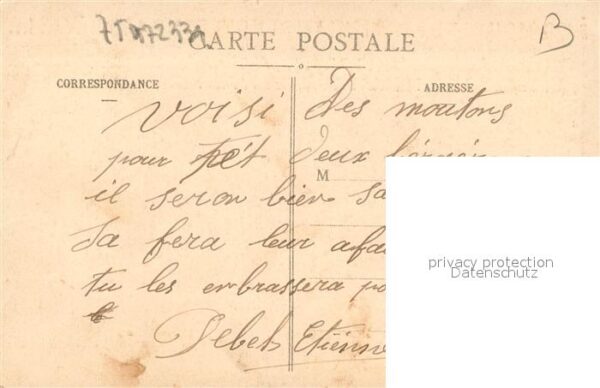 CARTE POSTALE
B
CORRESPONDANCE
ADRESSE
voisi Des moutons
pour deux
M
il seron bien sa
Sa fera leur afa
tu les enbrassera po
Debels Etienne
privacy protection
Datenschutz